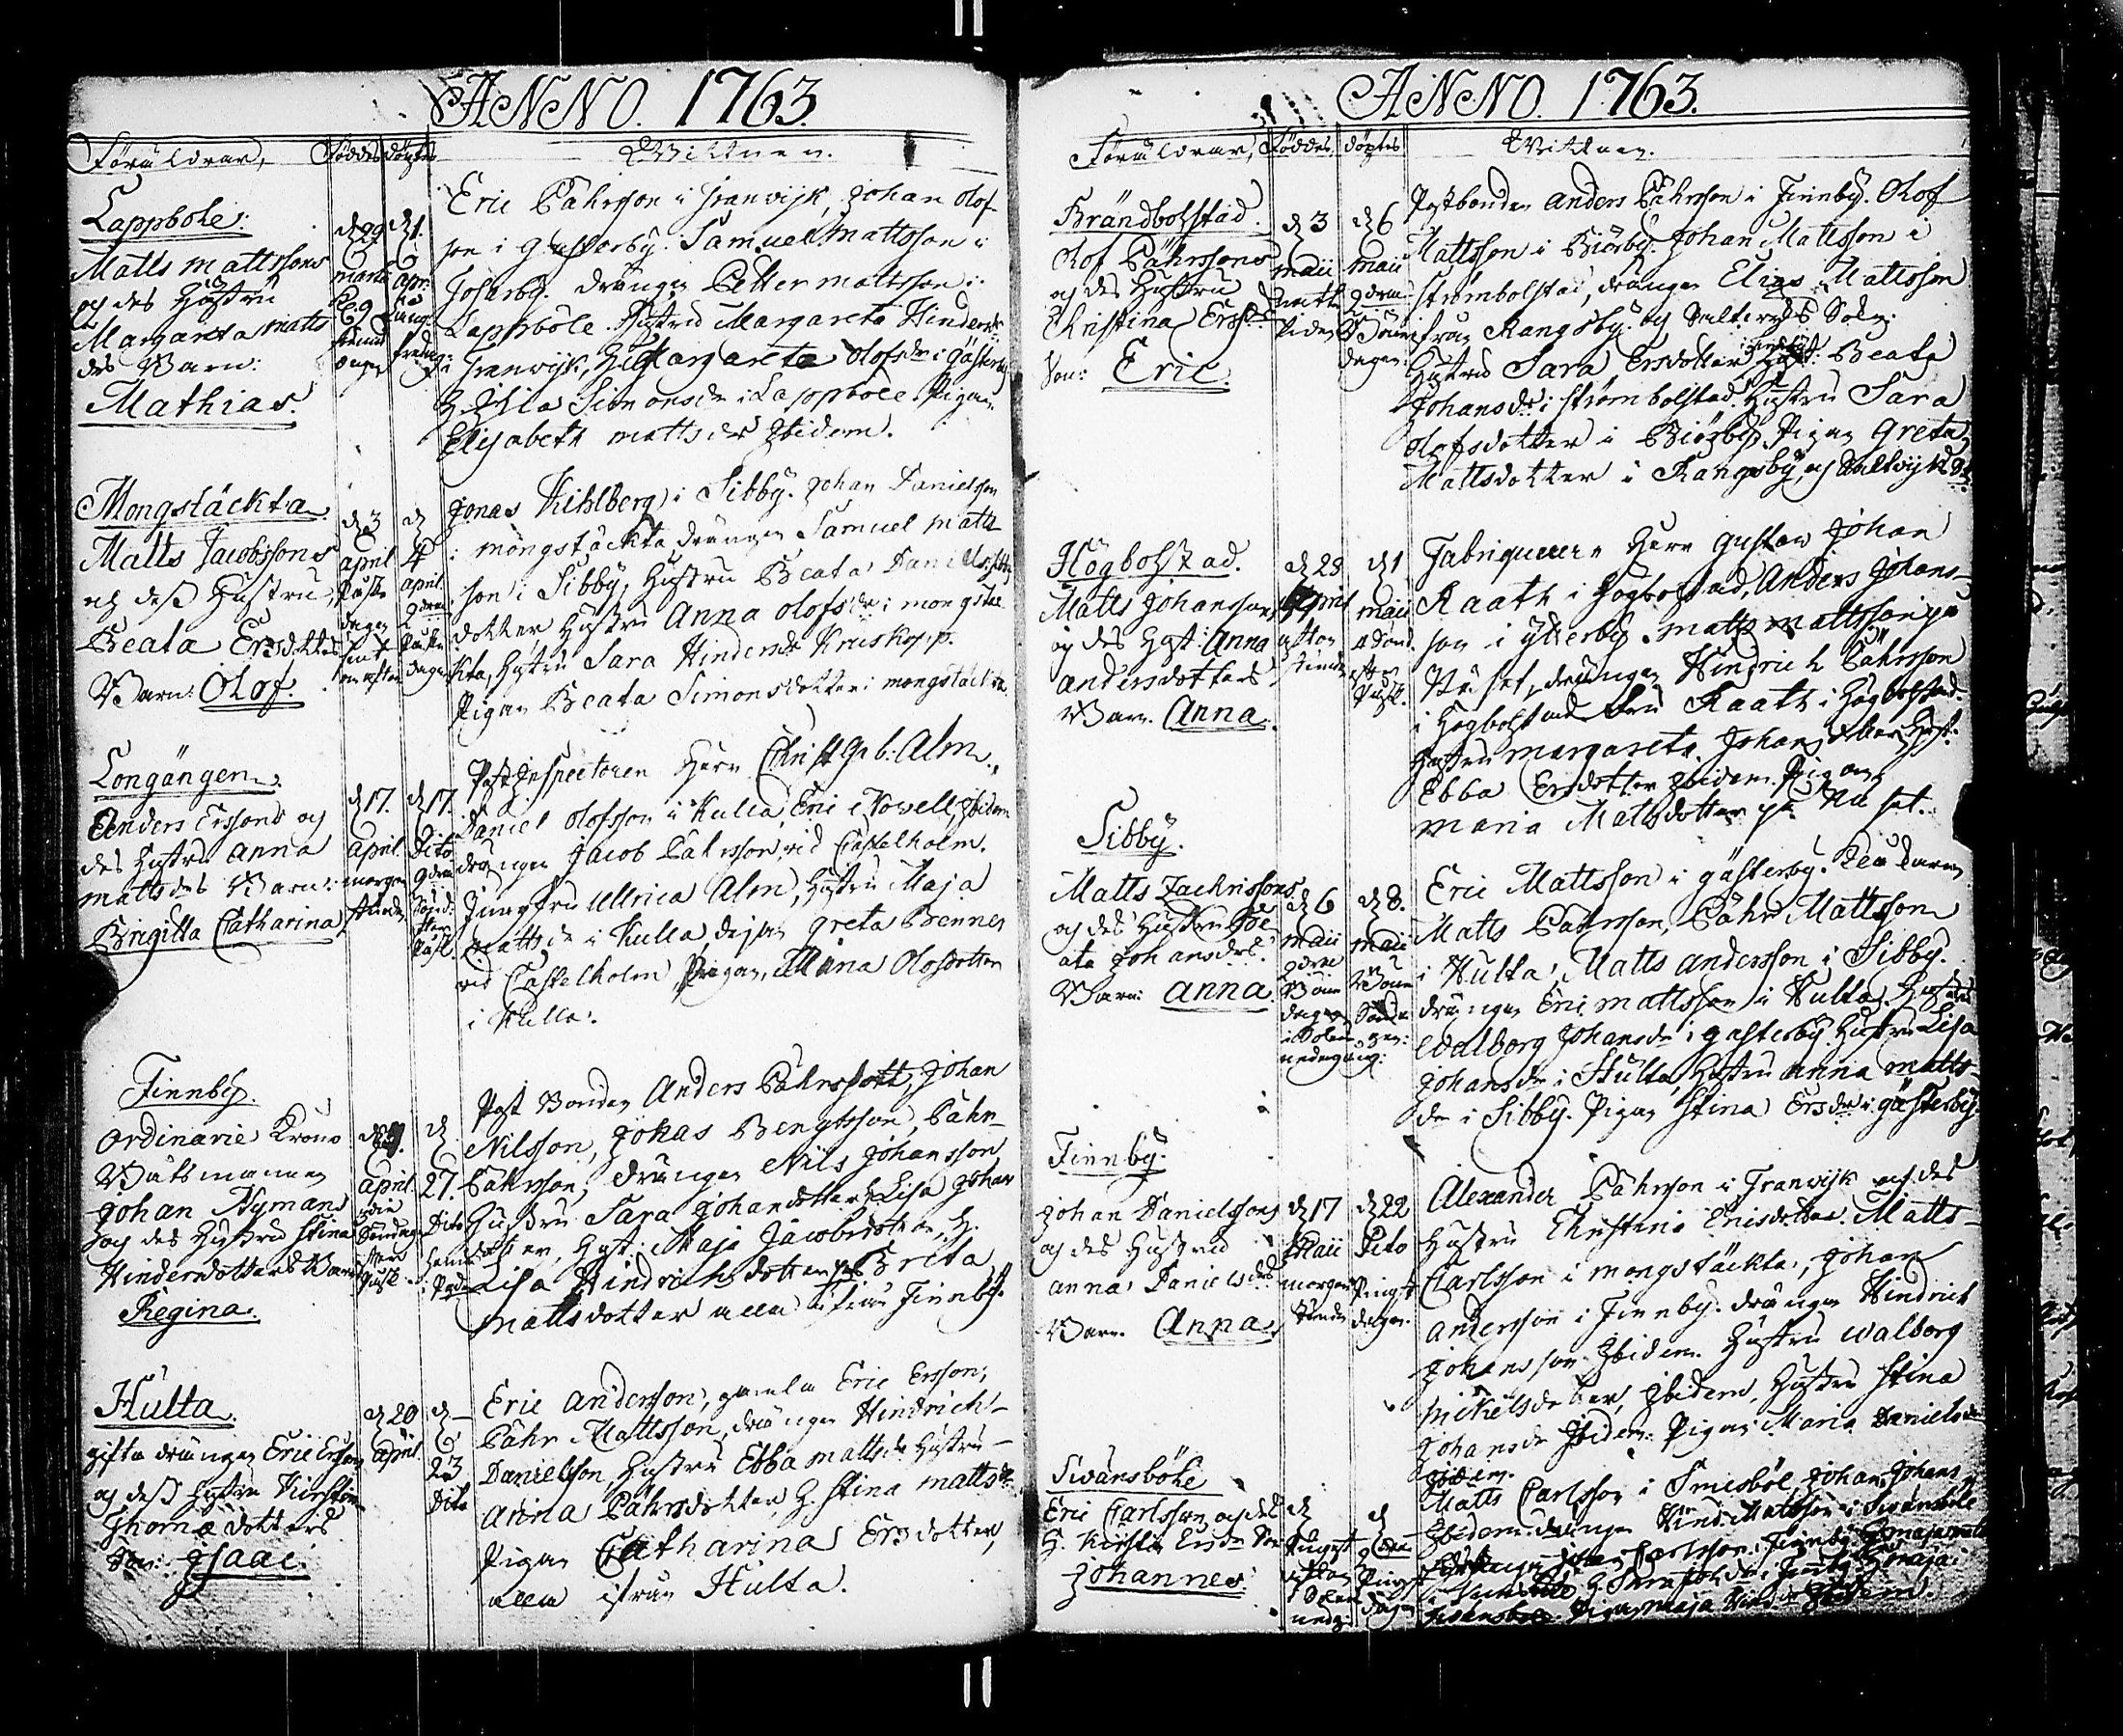 ANNO. 1763.
Föräldrar, Föddes döptes Wittnen.
Lappböle:
Matts mattssons
og des Hustru
Margareta matts
des Barn:
Mathias.
d 29
martii
d 1.
apr.
Eric Pährsson i Tranvijk, Johan Olof
son i Gästerby. Samuel Mattsson i
drängen Petter mattsson i
Lappböle. Hustru Margareta Hindersdr
i Tranvijk, H: Margareta Olofsdr i Gästerby
H Lisa Simonsdr i Lappböle. Pigan
Elisabeth mattsdr Ibidem.
Mongstäckta
Matts Jacobssons
og dess Hustru,
Beata Ersdotters
Barn: Olof.
d 3
april
Påske
dagen
d
4
april
2dra
Påske
dagen
Jonas Kihlberg i Sibby. Johan Danielsson
i mongstäckta drängen Samuel matts
son i Sibby, Hustru Beata Daniels
dotter Hustru Anna Olofsdr i mongstäc
kta, Hustru Sara Hindersdr Kruskopp.
Pigan Beata Simonsdotter i mongstäckta.
Longängen.
Anders Erssons og
des Hustru Anna
mattsdrs Barn:
Brigitta Catharina
d 17.
April
morgon
stunden
d 17.
Dito
2dra
Sönd:
efter
Påsk.
Post Inspectoren Herr Christ Gab: Alm.,
Daniel Olofsson i Kulla, Eric Novell, Ibidem
drängen Jacob Pährsson vid Castelholm.
Jungfru Ullrica Alm, Hustru Maja
Mattsdr i Kulla, Greta Brenner
vid Castelholm, Pigan, Olofsdotter
i Kulla.
Finnby.
Ordinarie Krono
Båtsmannen
Johan Nymans
og des Hustru Stina
Hindersdotters Barn
Regina.
d
April
Söndag
efter
Påsk
d
27.
Dito
Post Bonden Anders Pährsson, Johan
Nilsson, Johas Bengtsson, Pähr
Pährsson, drängen Nils Johansson
Hustru Sara Johansdotter, Lisa Johans
dotter, Hust: Maja Jacobsdotter, H.
Lisa Hindrichsdotter, P: Breta
mattsdotter alla ifrån Finnby.
Hulta.
gifta drängen Eric Ersson
og dess Hustru Kirstin
Thomædotters
Son: Isaac.
d 20
April
d
23
Dito
Eric Andersson, gamla Eric Ersson,
Pähr Mattsson, drängen Hindrich
Danielsson, Hustru Ebba mattsdr Hustru
Anna Pährsdotter, H. Stina mattsdr
Pigan Catharina Ersdotter,
alla ifrån Hulta.
ANNO. 1763.
Föräldrar, Föddes, döptes Wittnen.
Brändbolstad.
Olof Pährssons
og des Hustru
Christina Ersdrs
Son: Eric.
d 3
maii
natte
tiden
d 6
maii
2dra
Böne
dagen.
Postbonden Anders Pährsson i Finnby. Olof
Mattsson i Biörby. Johan Mattsson i
Strömbolstad, drängen Elias Mattsson
ifrån Rangsby og Saltviks Sokn.
Hustru Sara Ersdotter i Finby Hust: Beata
Johansdr i Strömbolstad. Hustru Sara
Olofsdotter i Biörby. Pigan Greta
Mattsdotter i Rangsby, og Saltvijks
Högbolstad.
Matts Johanssons
og des Hust: Anna
Andersdotters
Barn. Anna.
d 28
April
afton
stunden
d 1
maii
4 Sönd
efter
Påsk.
Fabriqueuren Herr Gustaw Johan
Raath i Högbolstad, Anders Johans-
son i Ytterby Matts mattsson på
Näset, drängen Hindrich Pährsson
i Högbolstad Fru Raath i Högbolstad.
Hustru Margareta Johansdotter, Hust:
Ebba Ersdotter Ibidem. Pigan
Maria Mattsdotter på Näset.
Sibby.
Matts Zachrissons
og des Hustru Be
ata Johansdrs.
Barn: Anna.
d 6
maii
2dra
Böne
dagen
i Solenes
nedergång:
d 8.
maii
Bönn
Sönda
gen:
Eric Mattsson i Gästerby.
Matts Pährsson, Pähr Mattsson
i Hulta, Matts Andersson i Sibby.
drängen Eric mattsson i Hulta. Hustru
Walborg Johansdr i Gästerby. Hustru Lisa
Johansdr i Hulta, Hustru Anna matts-
dr i Sibby. Pigan Stina Ersdr i Gästerby.
Finnby.
Johan Danielssons
og des Hustru
Anna Danielsdrs
Barn. Anna,
d 17
Maii
morgon
stunden
d 22
Dito
Pingst
dagen.
Alexander Pährsson i Tranvijk og des
Hustru Christina Ericsdotter. Matts
Carlsson i mongstäckta, Johan
Andersson i Finnby. drängen Hindrich
Johansson Ibidem. Hustru Walborg
Mickelsdotter, Ibidem, Hustru Stina
Johansdr Ibidem. Pigan Maria Danielsdr
Ibidem.
Svansböhle
Eric Carlsson og des
H. Kirstin Ersdr Son
Johannes.
d
Pingst
afton
d
2dra
Pingst
dagen
Matts Carlsson i Smesböl, Johan Johans
Ibidem drängen Hind: Mattsson i Svansböle
Carlsson i Finnby
Svansböle. Pigan Maja Ibidem.